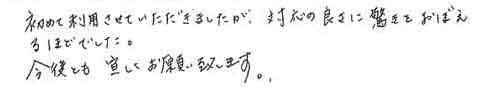 初めて利用させていただきましたが、対応の良さに驚きをおぼえ
るほどでした。
今後とも宜しくお願い致します。